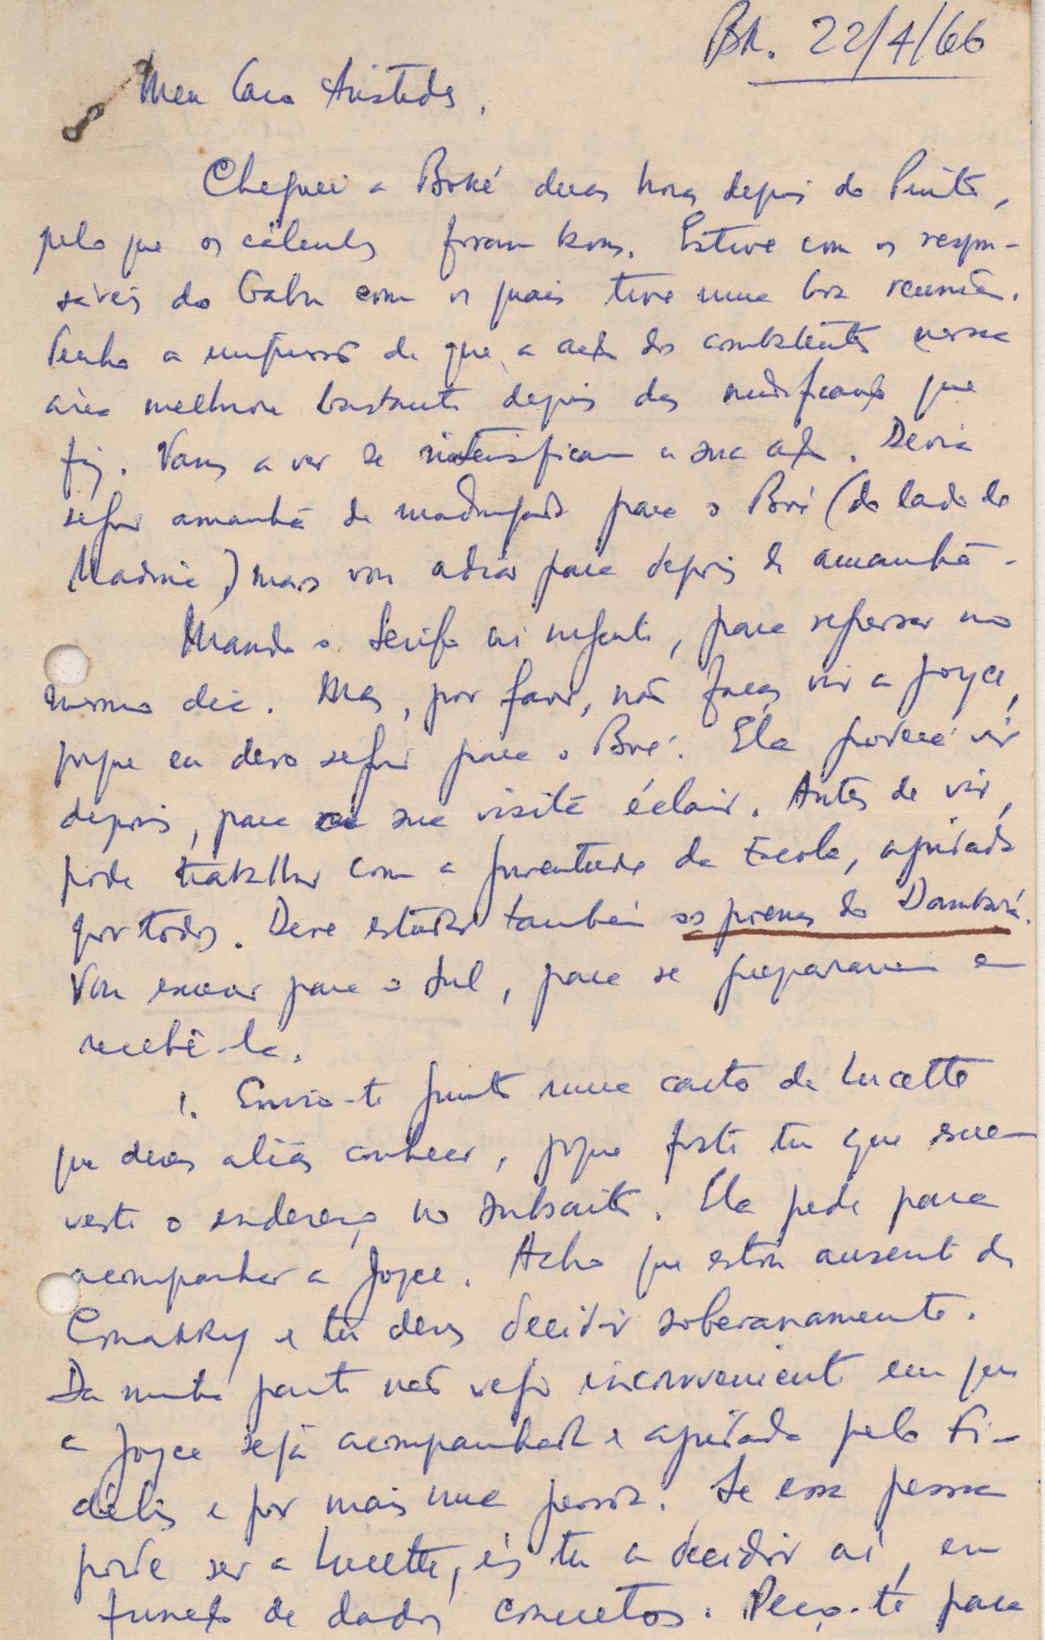 BK. 22/4/66
Meu Caro Aristides,
Cheguei a Boké duas horas depois do Pinto,
pelo que os cálculos foram bons. Estive com os respon-
sáveis do Gabu com os quais tive uma boa reunião.
Tenho a impressão de que a acção dos combatentes nessa
área melhorou bastante depois das modificações que
fiz. Vamos a ver se intensificam a sua acção. Devia
seguir amanhã de madrugada para o Boé (do lado de
Madina) mas vou adiar para depois de amanhã.
Mando o Serifo aí, para regressar no
mesmo dia. Mas, por favor, não faças vir a Joyce,
porque eu devo seguir para o Boé. Ela poderá vir
depois, para sua visita éclair. Antes de vir,
pode trabalhar com a Juventude da Escola, ajudada
por todos. Deve estudar também os poemas do Dambará.
Vou escrever para o Sul, para se prepararem a
recebê-la.
1. Envio-te junto uma carta da Lucette
que deves aliás conhecer, porque foste tu que escre-
veste o endereço no subscrito. Ela pede para
acompanhar a Joyce. Acho que estou ausente de
Conakry e tu deves decidir soberanamente.
Da minha parte não vejo inconveniente em que
a Joyce seja acompanhada e ajudada pelo Fi-
délis e por mais uma pessoa. Se essa pessoa
pode ser a Lucette, és tu a decidir aí, em
função de dados concretos. Peço-te para